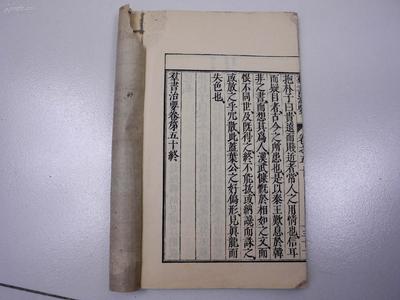 抱朴子曰貴遠而賤近者常人之用情也信耳
而疑目者古今之所患也是以秦王歎息於韓
非之書而想其爲人漢武慷慨於相如之文而
恨不同世及既得之終不能拔或納讒而誅之
或放之乎冗散此蓋葉公之好偽形見眞龍而
失色也
羣書治要卷第五十終